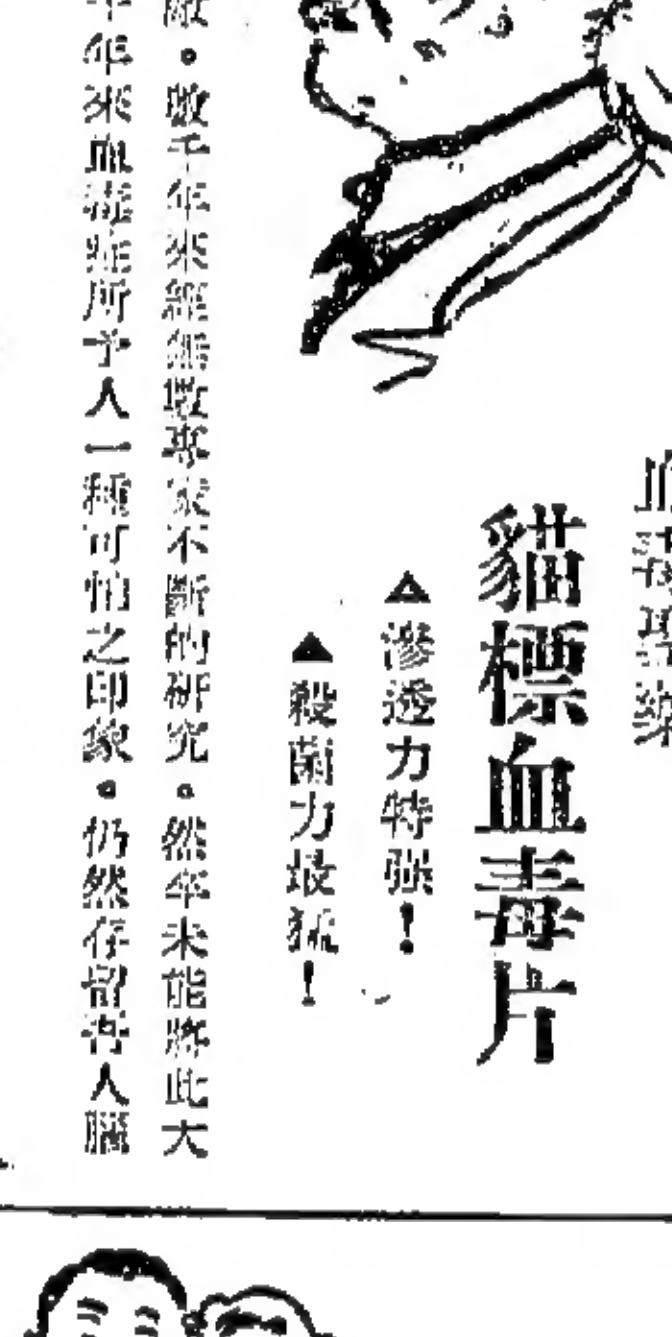 血毒聖藥
貓標血毒片
▲滲透力特强！
▲殺菌力最猛！
敵。數千年來經無數專家不斷的研究。然卒未能將此大
千年來血毒症所予人一種可怕之印象。仍然存留吾人腦